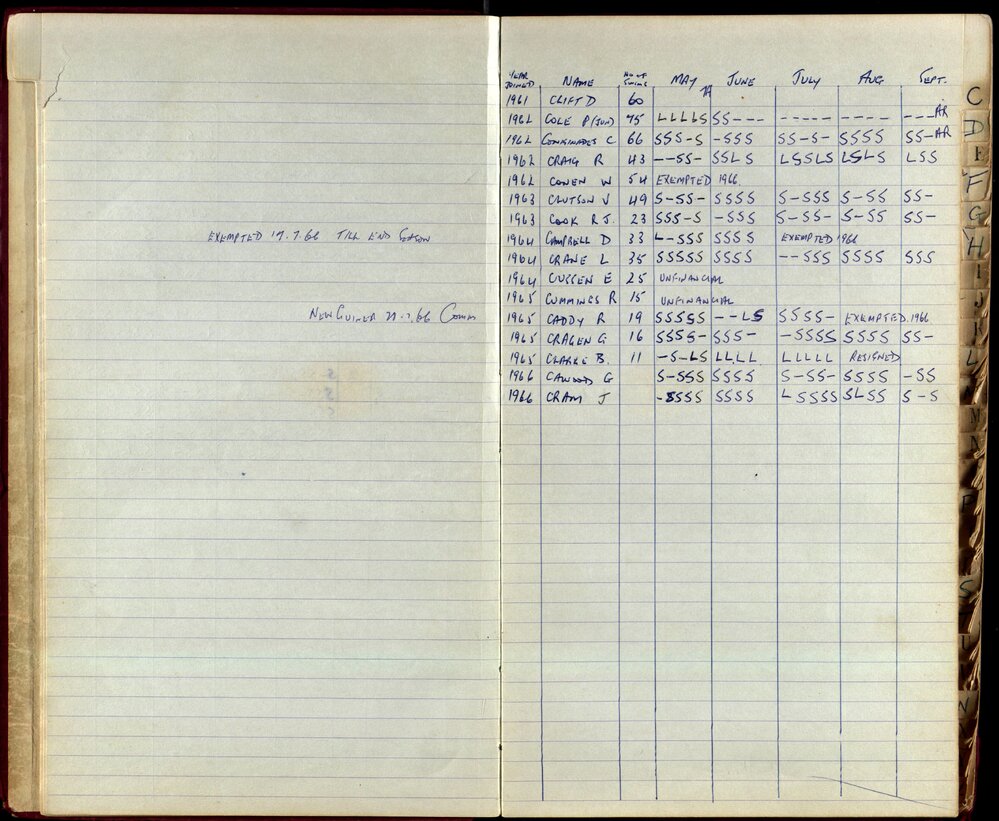 EXEMPTED 17.7.66 TILL END SEASON
NEW GUINEA 27.7.66 Comm
YEAR JOINED NAME NO OF SWIMS MAY JUNE JULY AUG SEPT.
1961 CLIFT D 60
1962 COLE P (JUN) 75 LLLLS SS--- ---- ---- ---AR
1962 C 66 SSS-S -SSS SS-S- SSSS SS-AR
1962 CRAIG R 43 --SS- SSLS LSSLS LSLS LSS
1962 COWEN W 54 EXEMPTED 1966.
1963 CLUTSON V 49 S-SS- SSSS S-SSS S-SS SS-
1963 COOK R J. 23 SSS-S -SSS S-SS- S-SS SS-
1964 CAMPBELL D 33 L-SSS SSSS EXEMPTED 1966
1964 CRANE L 35 SSSSS SSSS --SSS SSSS SSS
1964 CUSSEN E 25 UNFINANCIAL
1965 CUMMINGS R 15 UNFINANCIAL
1965 CADDY R 19 SSSSS --LS SSSS- EXEMPTED.1966
1965 CRAGEN G 16 SSSS- SSS- -SSSS SSSS SS-
1965 CLARKE B. 11 -S-LS LLLL LLLLL RESIGNED
1966 CAWOOD G S-SSS SSSS S-SS- SSSS -SS
1966 CRAM J -SSSS SSSS LSSSS SLSS S-S
C
D
E
F
G
H
I
J
K
L
M
N
P
S
U
W